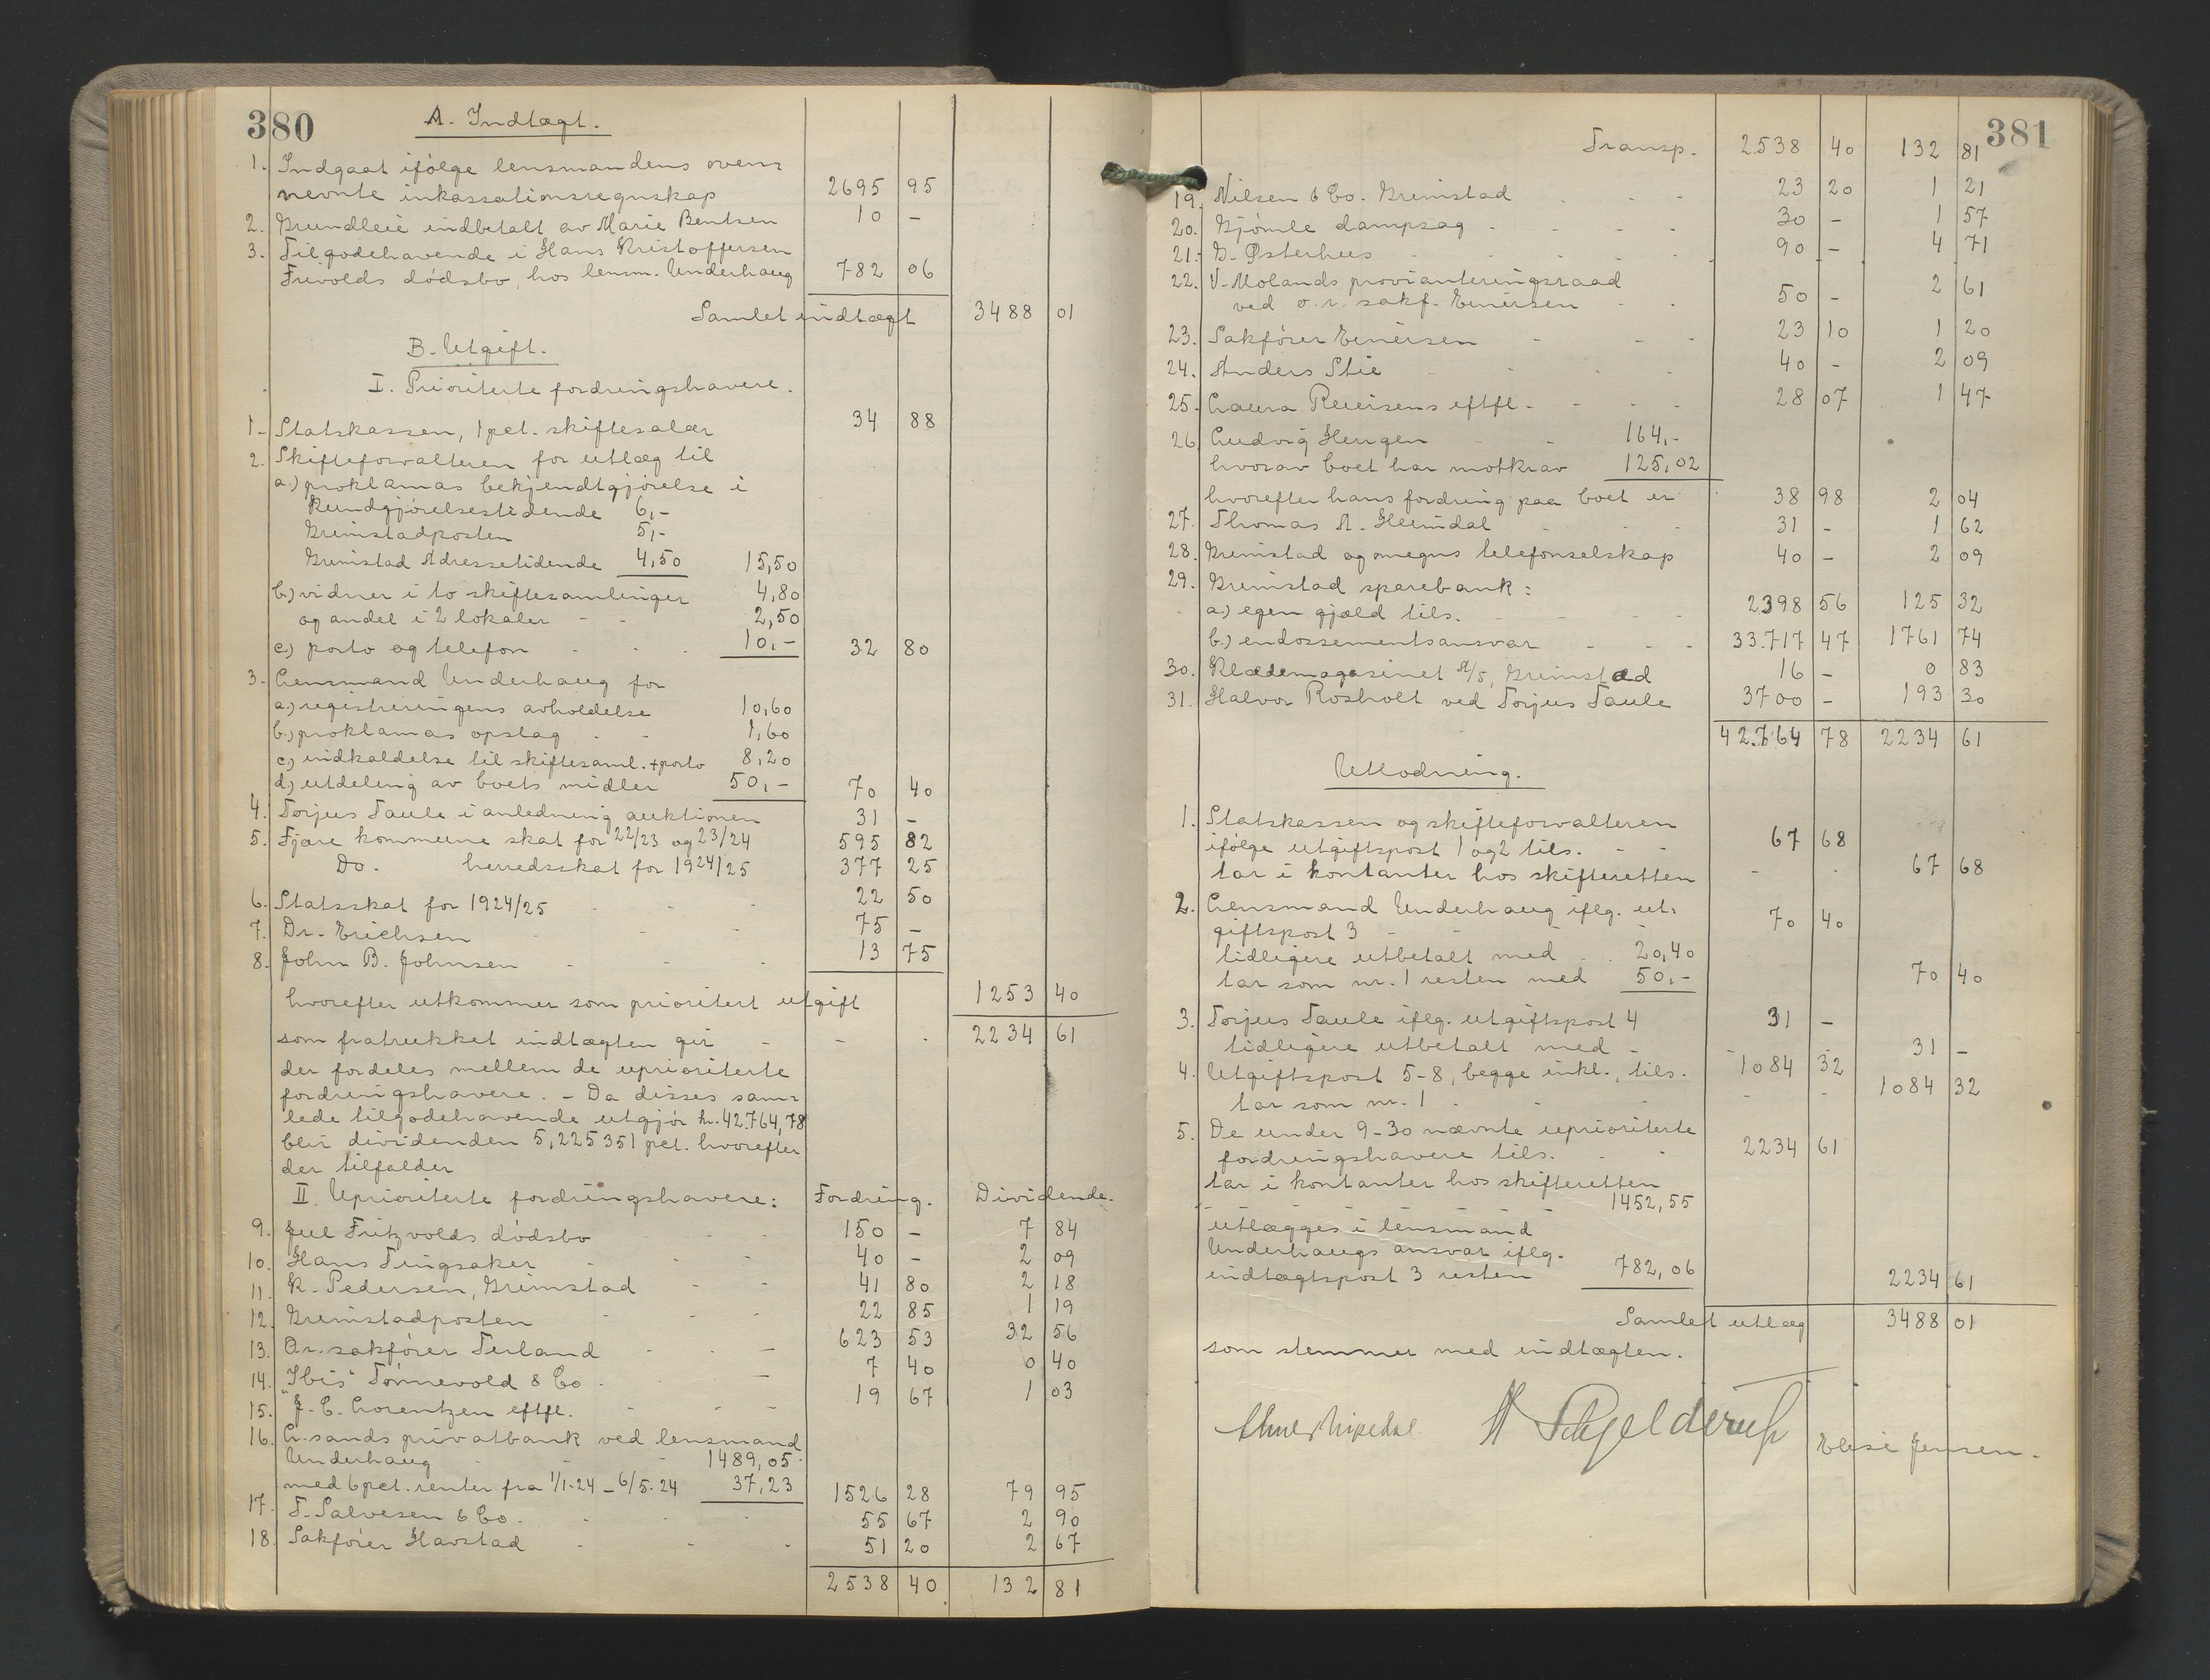 380
A. Indtægt.
1. Indgaat ifølge lensmandens oven=
nevnte inkassationsregnskap 2695 95
2. Grundleie indbetalt av Marie Bentsen 10 -
3. Tilgodehavende i Hans Kristoffersen
Frivolds dødsbo, hos lensm. Underhaug 782 06
Samlet indtægt 3488 01
B. Utgift.
I. Prioriterte fordringshavere.
1. Statskassen, 1 pct. skiftesalær 34 88
2. Skifteforvalteren for utlæg til
a.) proklamas bekjendtgjørelse i
Kundgjørelsestidende 6,-
Grimstadposten 5,-
Grimstad Adressetidende 4,50 15,50
b.) vidner i to skiftesamlinger 4,80
og andel i 2 lokaler - - 2,50
c) porto og telefon - - - 10,- 32 80
3. Lensmand Underhaug for
a.) registreringens avholdelse 10,60
b.) proklamas opslag - - 1,60
c) indkaldelse til skiftesaml. + porto 8,20
d.) utdeling av boets midler 50,- 70 40
4. Torjus Taule i anledning auktionen 31 -
5. Fjære kommune skat for 22/23 og 23/24 595 82
Do. herredsskat for 1924/25 377 25
6. Statsskat for 1924/25 - - - 22 50
7. Dr. Erichsen - - - 75 -
8. John B. Johnsen - - - 13 75
hvorefter utkommer som prioritert utgift 1253 40
som fratrukket indtægten gir - - - 2234 61
der fordeles mellem de uprioriterte
fordringshavere. - Da disses sam=
lede tilgodehavende utgjør kr. 42.764,78
blir dividenden 5,225351 pct. hvorefter
der tilfalder
II. Uprioriterte fordringshavere: Fordring. Dividende.
9. Juul Fritzvolds dødsbo 150 - 7 84
10. Hans Tingsaker - - - 40 - 2 09
11. K. Pedersen, Grimstad - - 41 80 2 18
12. Grimstadposten - - - 22 85 1 19
13. O.r. sakfører Terland - - - 623 53 32 56
14. "Ibis" Tønnevold & Co - - - 7 40 0 40
15. J. C. Lorentzen eftfl. - - - 19 67 1 03
16. L.sands privatbank ved lensmand
Underhaug - - 1489,05
med 6 pct. renter fra 1/1-24 - 6/5-24 37,23 1526 28 79 95
17. T. Salvesen & Co. - - - 55 67 2 90
18. Sakfører Havstad - - - 51 20 2 67
2538 40 132 81
381
Transp. 2.538 40 132 81
19. Nilsen & Co. Grimstad - - - 23 20 1 21
20. Gjømle dampsag - - - - 30 - 1 57
21. G. Østerhus - - - - 90 - 4 71
22. V. Molands provianteringsraad
ved o.r. sakf. - - 50 - 2 61
23. Sakfører - - - 23 10 1 20
24. Anders Stie - - - - 40 - 2 09
25. Laura eftfl. - - - 28 07 1 47
26. Ludvig - - 164,-
hvorav boet har motkrav 125,02
hvorefter hans fordring paa boet er 38 98 2 04
27. Thomas A. - - - 31 - 1 62
28. Grimstad og omegns telefonselskap 40 - 2 09
29. Grimstad sparebank:
a.) egen gjæld tils. - - - - 2398 56 125 32
b.) endossementsansvar - - - 33.717 47 1761 74
30. Klædemagasinet A/S, Grimstad 16 - 0 83
31. Halvor Rosholt ved Torjus Taule 3700 - 193 30
42.764 78 2234 61
Utlodning.
1. Statskassen og skifteforvalteren
ifølge utgiftspost 1 og 2 tils. - - 67 68
tar i kontanter hos skifteretten - - 67 68
2. Lensmand Underhaug iflg. ut=
giftspost 3 - - - - 70 40
tidligere utbetalt med - - 20,40
tar som nr. 1 resten med 50,- 70 40
3. Torjus Taule iflg. utgiftspost 4 31 -
tidligere utbetalt med - - - 31 -
4. Utgiftspost 5-8, begge inkl., tils. 1084 32
tar som nr. 1 - - - - - 1084 32
5. De under 9-30 nævnte uprioriterte
fordringshavere tils. - - 2234 61
tar i kontanter hos skifteretten
- - - - - - 1452,55
utlægges i lensmand
Underhaugs ansvar iflg.
indtægtspost 3 resten 782,06 2234 61
Samlet utlæg 3488 01
som stemmer med indtægten.
Elise Jensen.